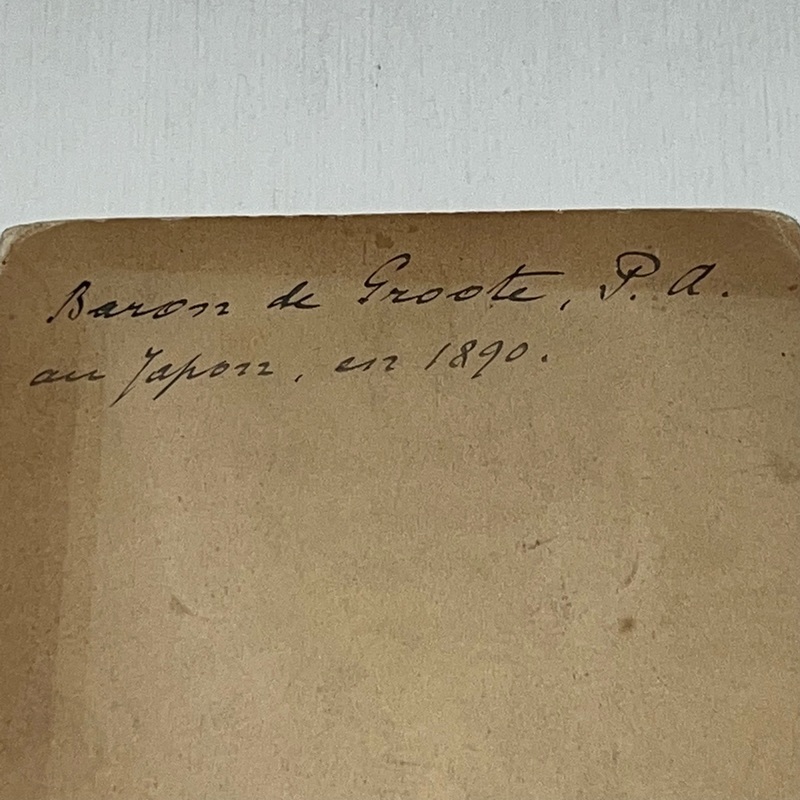 Baron de Groote, P. A.
au Japon, en 1890.